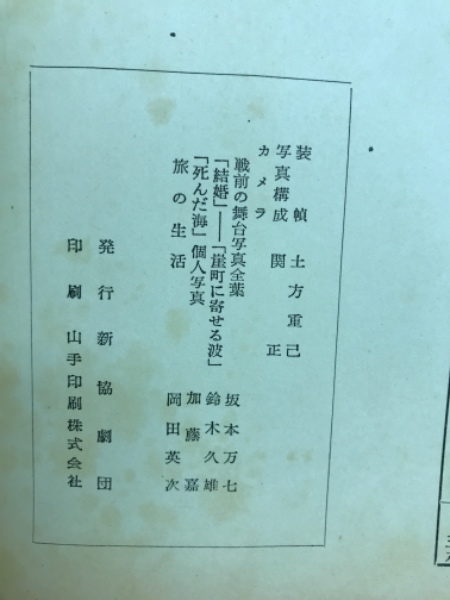 装幀 土方重己
写真構成 関正
カメラ
戦前の舞台写真全葉 坂本万七
「結婚」―「崖町に寄せる波」 鈴木久雄
「死んだ海」個人写真 加藤嘉
旅の生活 岡田英次
発行 新協劇団
印刷 山手印刷株式会社